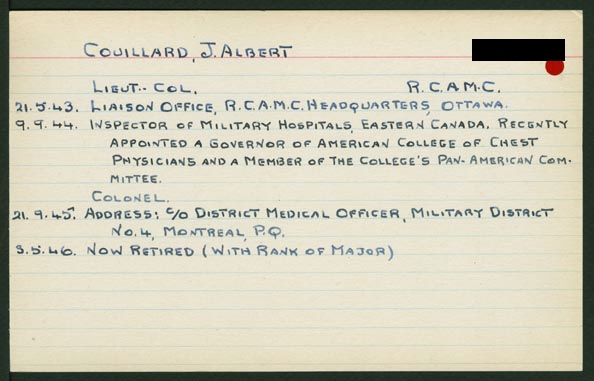 COUILLARD, J. ALBERT
LIEUT.- COL. R.C.A.M.C.
21.5.43. LIAISON OFFICE, R.C.A.M.C. HEADQUARTERS, OTTAWA.
9.9.44. INSPECTOR OF MILITARY HOSPITALS, EASTERN CANADA. RECENTLY
APPOINTED A GOVERNOR OF AMERICAN COLLEGE OF CHEST
PHYSICIANS AND A MEMBER OF THE COLLEGE'S PAN-AMERICAN COM-
MITTEE.
COLONEL.
21.9.45. ADDRESS: C/O DISTRICT MEDICAL OFFICER, MILITARY DISTRICT
NO.4, MONTREAL, P.Q.
3.5.46. NOW RETIRED (WITH RANK OF MAJOR)